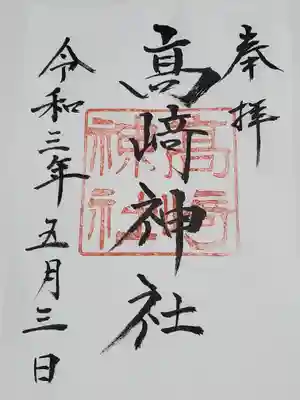 奉拝
髙﨑神社
令和三年五月三日
高崎
神社